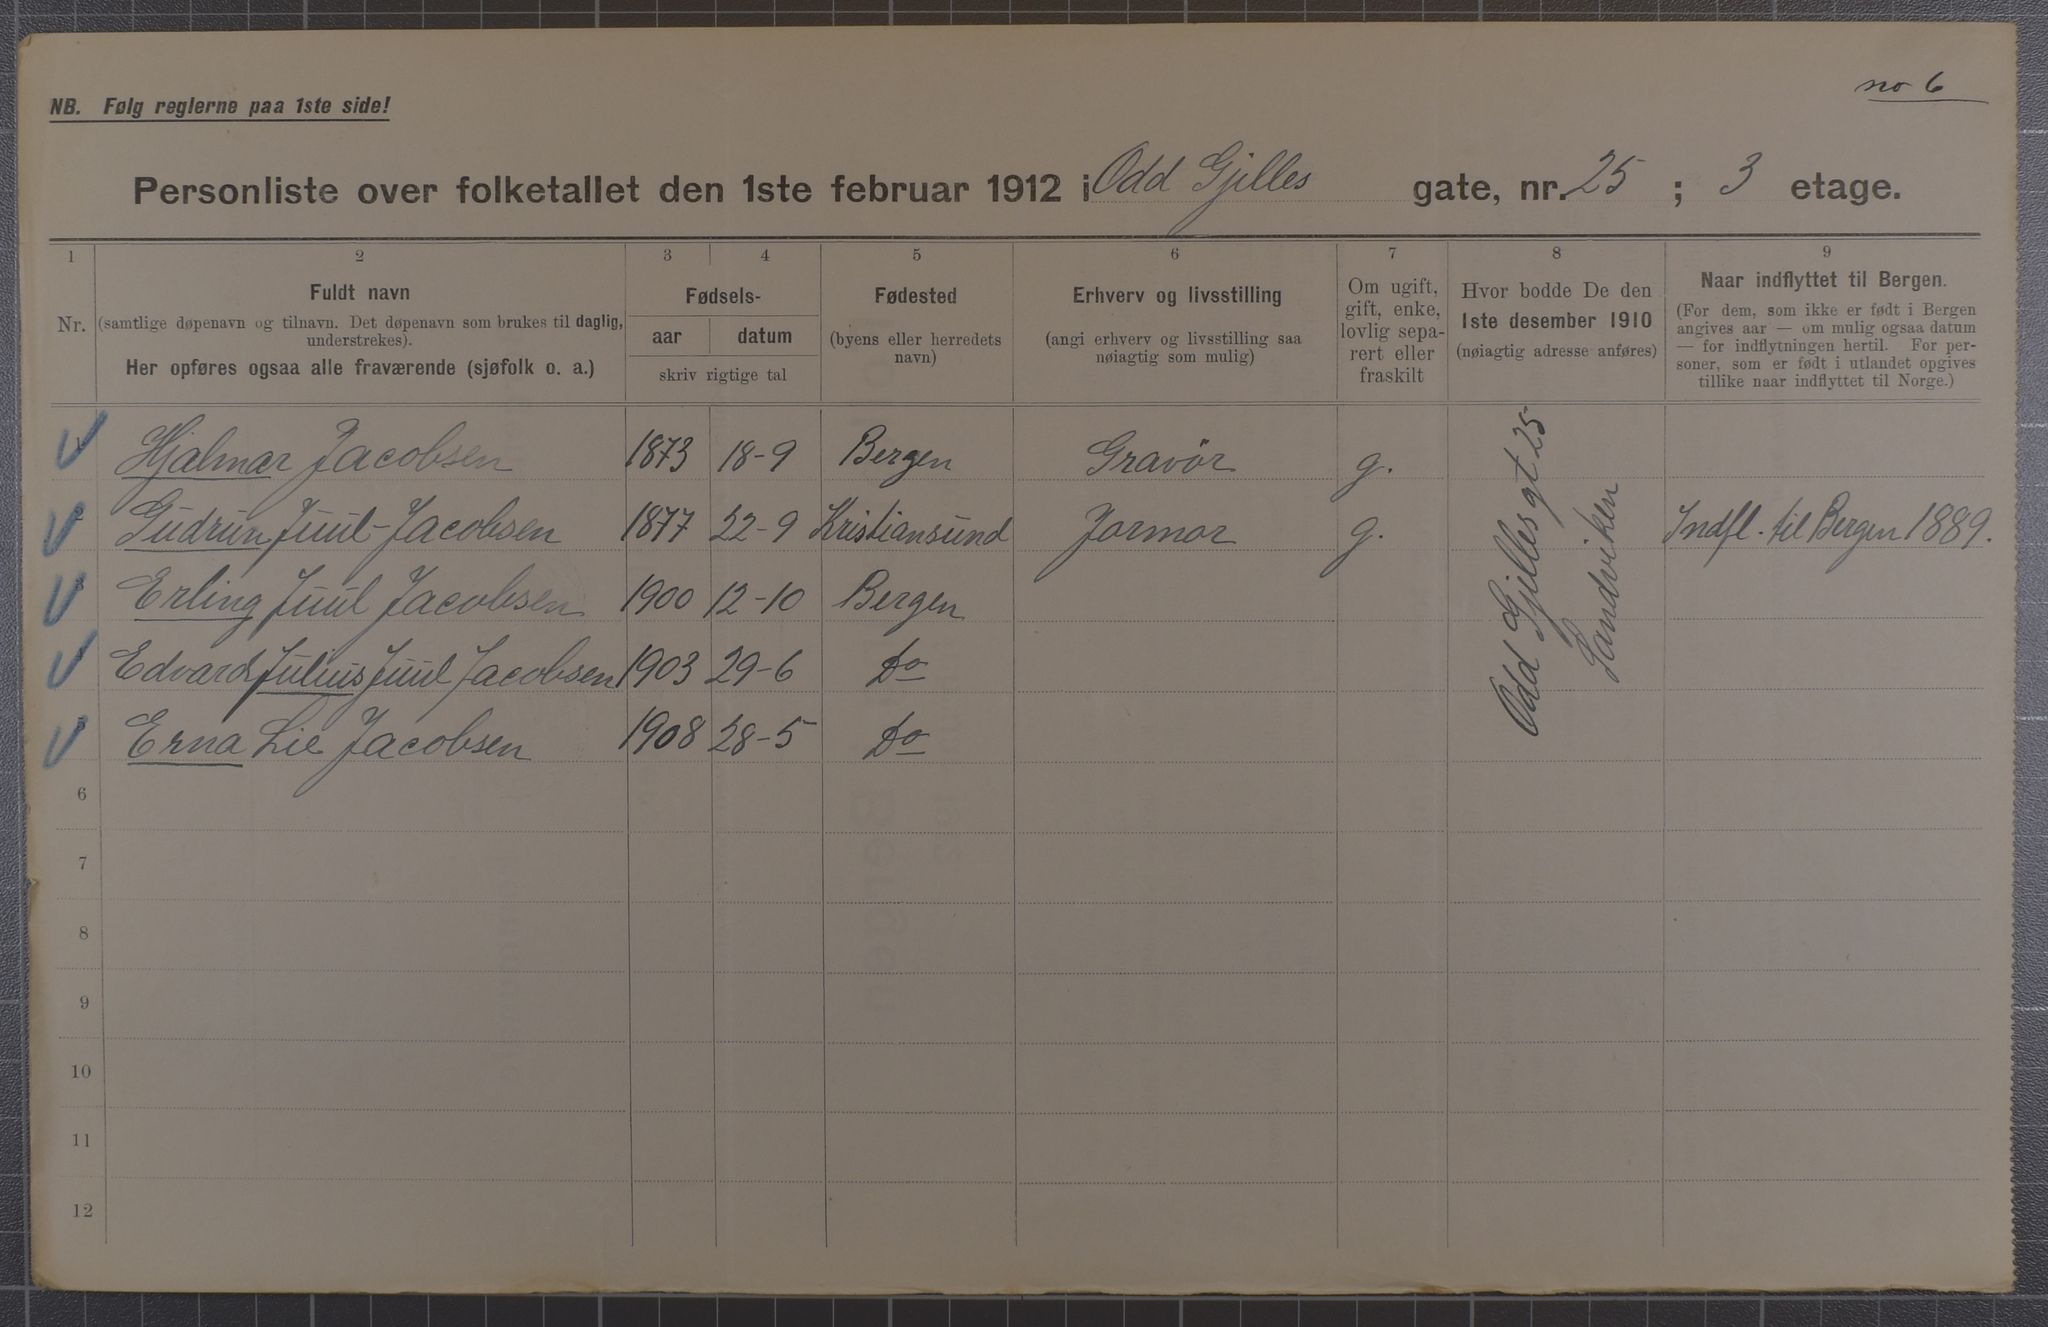 no 6
NB. Følg reglerne paa 1ste side!
Personliste over folketallet den 1ste februar 1912 i Odd Gjilles gate, nr. 25 ; 3 etage.
1 2 3 4 5 6 7 8 9
Nr.
Fuldt navn
(samtlige døpenavn og tilnavn. Det døpenavn som brukes til daglig,
understrekes).
Her opføres ogsaa alle fraværende (sjøfolk o. a.)
Fødsels-
aar datum
skriv rigtige tal
Fødested
(byens eller herredets
navn)
Erhverv og livsstilling
(angi erhverv og livsstilling saa
nøiagtig som mulig)
Om ugift,
gift, enke,
lovlig sepa-
rert eller
fraskilt
Hvor bodde De den
1ste desember 1910
(nøiagtig adresse anføres)
Naar indflyttet til Bergen.
(For dem, som ikke er født i Bergen
angives aar — om mulig ogsaa datum
— for indflytningen hertil. For per-
soner, som er født i utlandet opgives
tillike naar indflyttet til Norge.)
1 Hjalmar Jacobsen 1873 18-9 Bergen Gravör g.
2 Gudrun Juul-Jacobsen 1877 22-9 Kristiansund Jormor g. Indfl. til Bergen 1889.
3 Erling Juul Jacobsen 1900 12-10 Bergen
4 Edvard Julius Juul Jacobsen 1903 29-6 Do
5 Erna Lie Jacobsen 1908 28-5 Do
Odd Gjilles gt 25
Sandviken
6
7
8
9
10
11
12